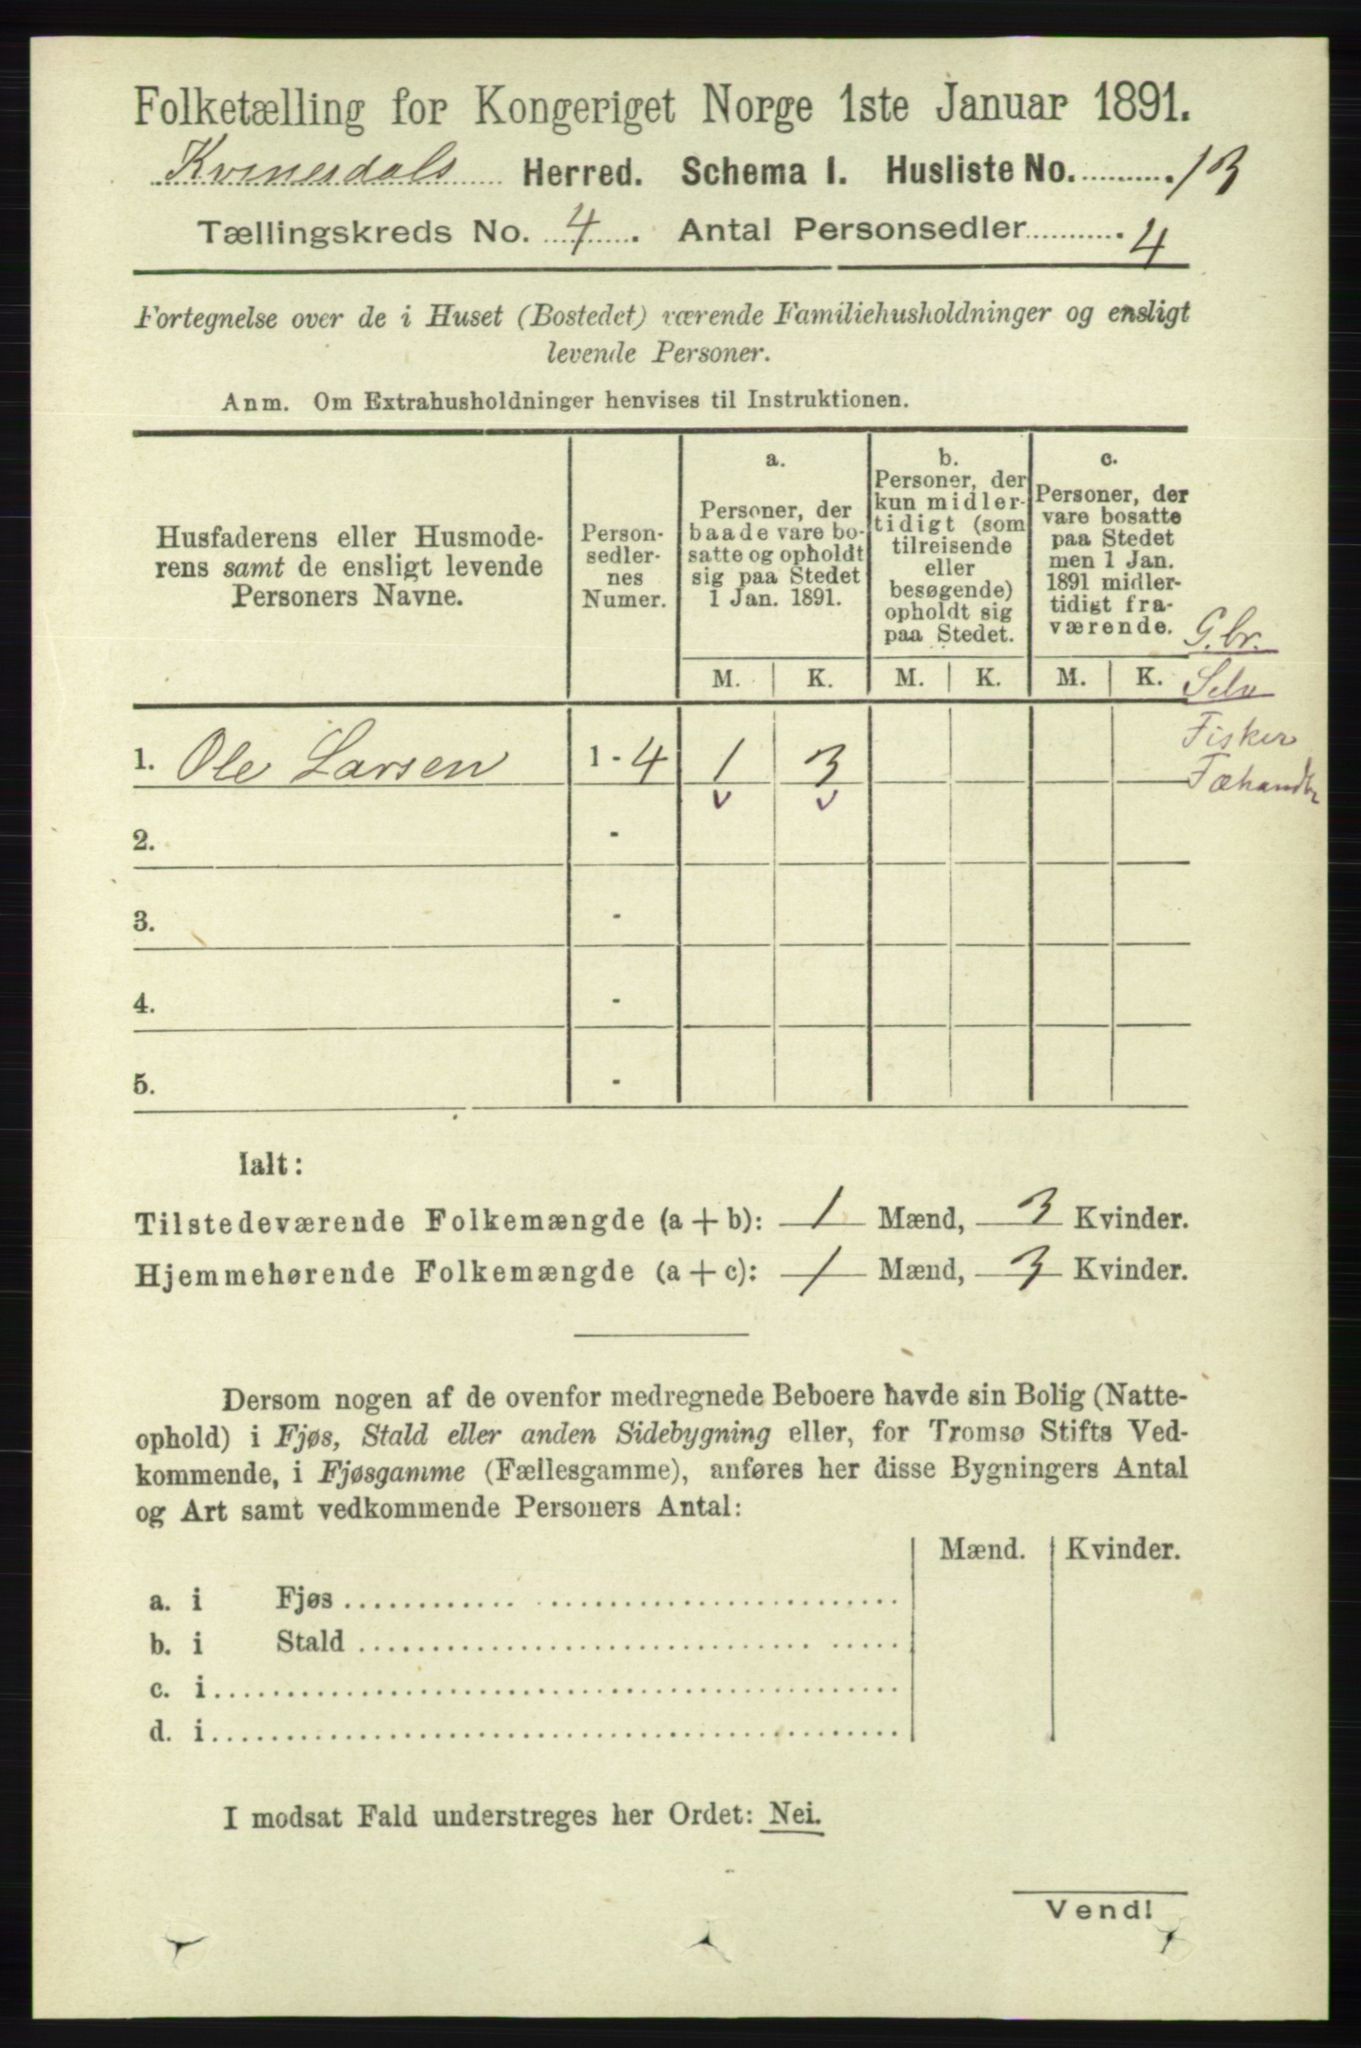 Folketælling for Kongeriget Norge 1ste Januar 1891.
Kvinesdals Herred. Schema I. Husliste No. 13
Tællingskreds No. 4. Antal Personsedler 4
Fortegnelse over de i Huset (Bostedet) værende Familiehusholdninger og ensligt
levende Personer.
Anm. Om Extrahusholdninger henvises til Instruktionen.
Husfaderens eller Husmode-
rens samt de ensligt levende
Personers Navne.
Person-
sedler-
nes
Numer.
a.
Personer, der
baade vare bo-
satte og opholdt
sig paa Stedet
1 Jan. 1891.
b.
Personer, der
kun midler-
tidigt (som
tilreisende
eller
besøgende)
opholdt sig
paa Stedet.
c.
Personer, der
vare bosatte
paa Stedet
men 1 Jan.
1891 midler-
tidigt fra-
værende.
M. K. M. K. M. K.
G.br.
Selv
Fisker
Fæhandler
1. Ole Larsen 1 - 4 1 3
v v
2. -
3. -
4. -
5. -
Ialt:
Tilstedeværende Folkemængde (a + b): 1 Mænd, 3 Kvinder.
Hjemmehørende Folkemængde (a + c): 1 Mænd, 3 Kvinder.
Dersom nogen af de ovenfor medregnede Beboere havde sin Bolig (Natte-
ophold) i Fjøs, Stald eller anden Sidebygning eller, for Tromsø Stifts Ved-
kommende, i Fjøsgamme (Fællesgamme), anføres her disse Bygningers Antal
og Art samt vedkommende Personers Antal:
Mænd. Kvinder.
a. i Fjøs
b. i Stald
c. i
d. i
I modsat Fald understreges her Ordet: Nei.
Vend!